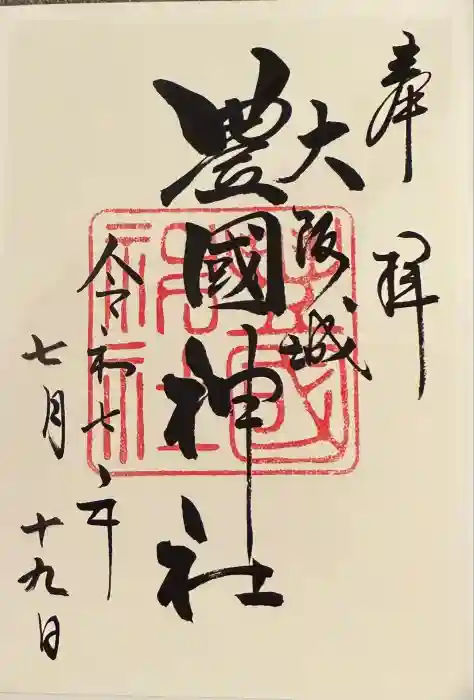 奉拝
大阪城
豊國神社
令和七年
七月十九日
豊國神社